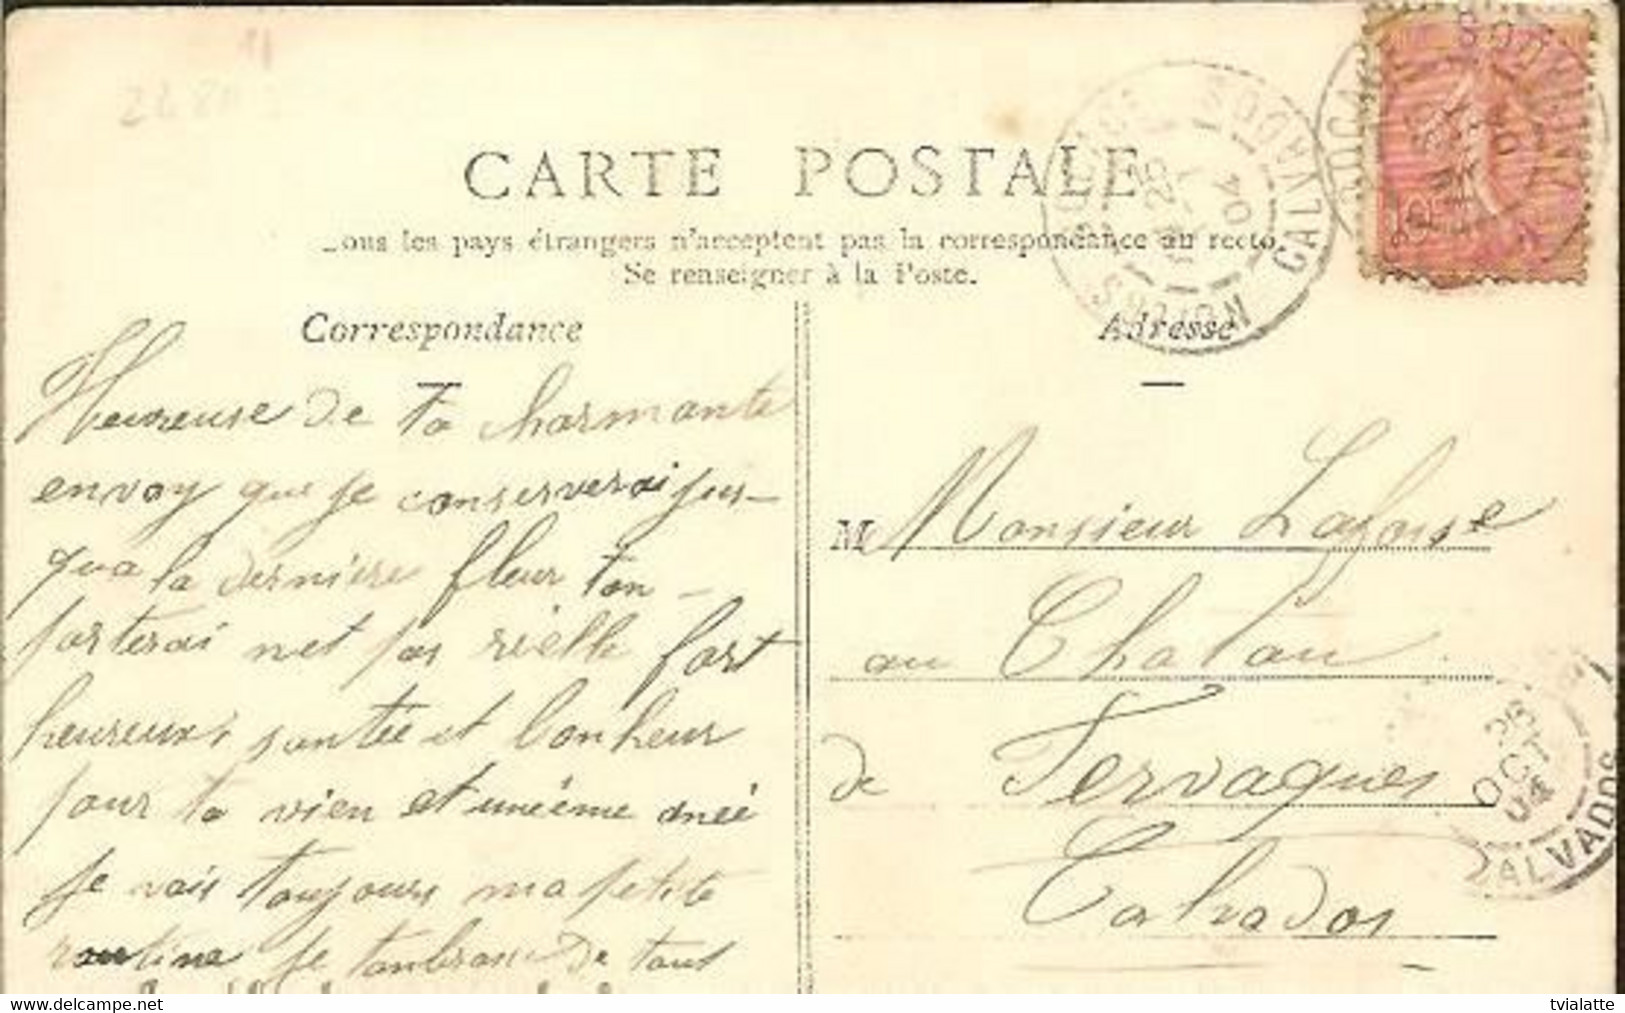 CARTE POSTALE
Tous les pays étrangers n'acceptent pas la correspondance au recto.
Se renseigner à la Poste.
Correspondance
Heureuse de ta charmante
envoy que je conserverai jus-
qua la dernière fleur ton
porterai net pas rielle fort
heureux santée et bonheur
pour ta vien et uneéme aneé
je vais toujours ma petite
routine je tanbrasse de tout
Adresse
M Monsieur Lafosse
au Chatau
de Fervaques
Calvados
CALVADOS
25
04
10c
26
OCT
04
CALVADOS
www.delcampe.net
tvialatte